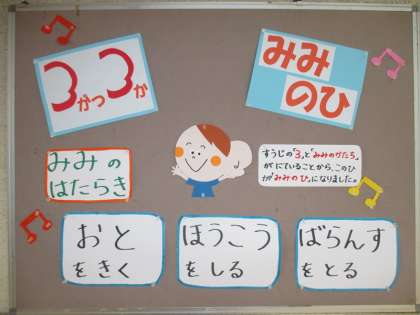 3がつ3か
みみ
のひ
みみの
はたらき
すうじの「3」と「みみのかたち」
がにていることから、このひ
が「みみのひ」になりました。
おと
をきく
ほうこう
をしる
ばらんす
をとる